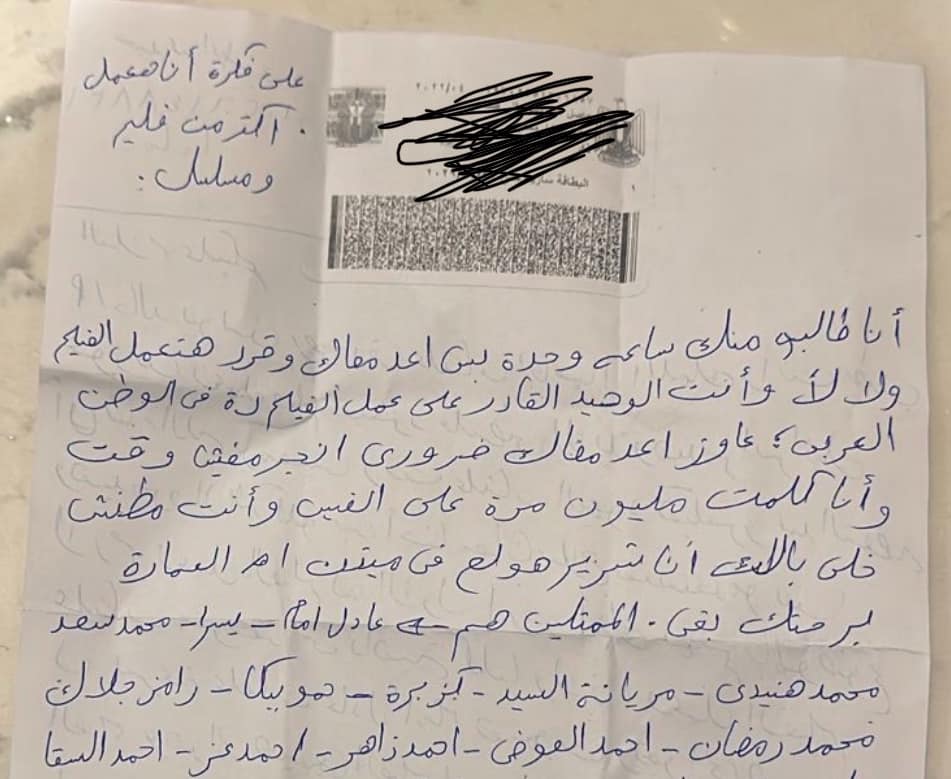 على فكرة أنا هعمل
أكتر من فليم
ومسلسل :
٢٠٢٢/٠٤
البطاقة سارية
أنا طالبو منك ساعه وحدة بس اعد معاك وقرر هتعمل الفيلم
ولا لأ وأنت الوحيد القادر على عمل الفيلم دة فى الوطن
العربى ؛ عاوز اعد معاك ضرورى انجر مفيش وقت
وأنا كلمت مليون مرة على الفيس وأنت مطنش
خلى بالك أنا شرير هولع فى ميتين ام العمارة
ابر حتك بقى . الممثلين هم عادل امام - يسرا - محمد سعد
محمد هنيدى - مريانة السيد - كزبرة - حمو بيكا - رامز جلال
محمد رمضان - احمد العوضى - احمد زاهر - احمد عز - احمد السقا